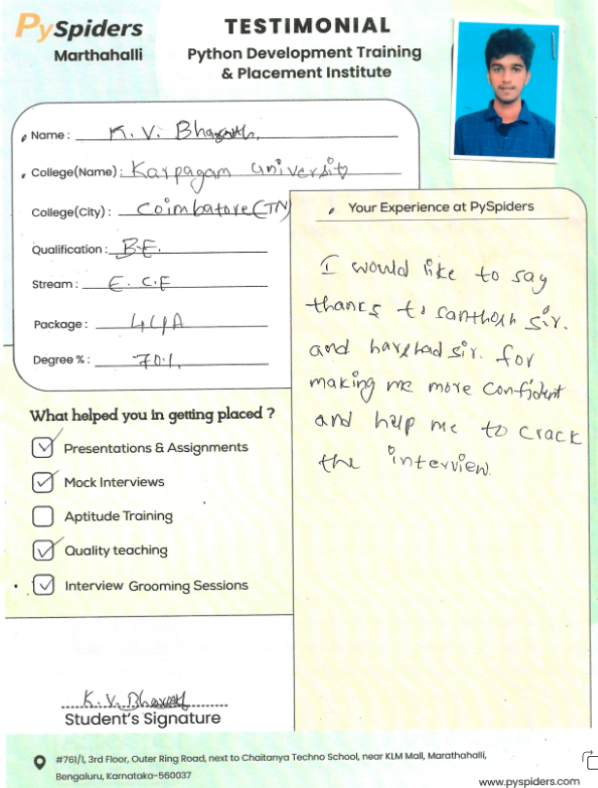 PySpiders
Marthahalli
TESTIMONIAL
Python Development Training
& Placement Institute
Name : K. V. Bharath.
College(Name) : Karpagam university
College(City) : Coimbatore (TN)
Qualification : B.E.
Stream : E. C.E
Package : 4LPA
Degree % : 70%
What helped you in getting placed ?
Presentations & Assignments
Mock Interviews
Aptitude Training
Quality teaching
Interview Grooming Sessions
Your Experience at PySpiders
I would like to say
thanks to santhosh sir.
and sir. for
making me more confident
and help me to crack
the interview.
K. V. Bharath
Student's Signature
#761/1, 3rd Floor, Outer Ring Road, next to Chaitanya Techno School, near KLM Mall, Marathahalli,
Bengaluru, Karnataka-560037
www.pyspiders.com